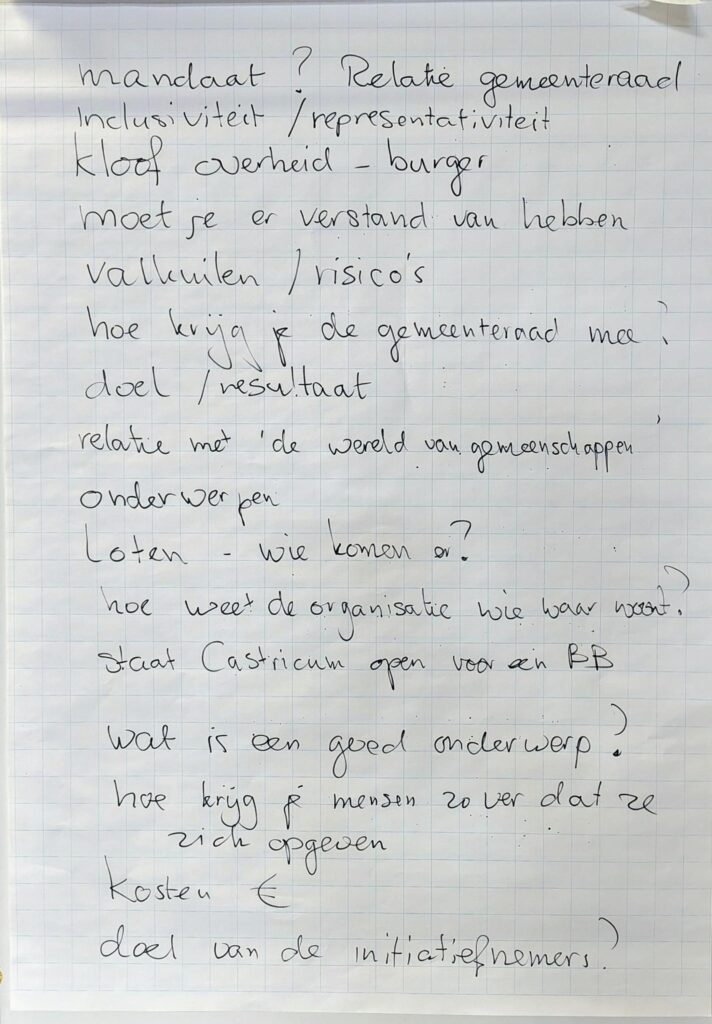 mandaat ? Relatie gemeenteraad
Inclusiviteit / representativiteit
kloof overheid - burger
moet je er verstand van hebben
valkuilen / risico's
hoe krijg je de gemeenteraad mee?
doel / resultaat
relatie met 'de wereld van gemeenschappen'
onderwerpen
Loten - wie komen er?
hoe weet de organisatie wie waar woont?
staat Castricum open voor een BB
wat is een goed onderwerp?
hoe krijg je mensen zover dat ze
zich opgeven
kosten €
doel van de initiatiefnemers?